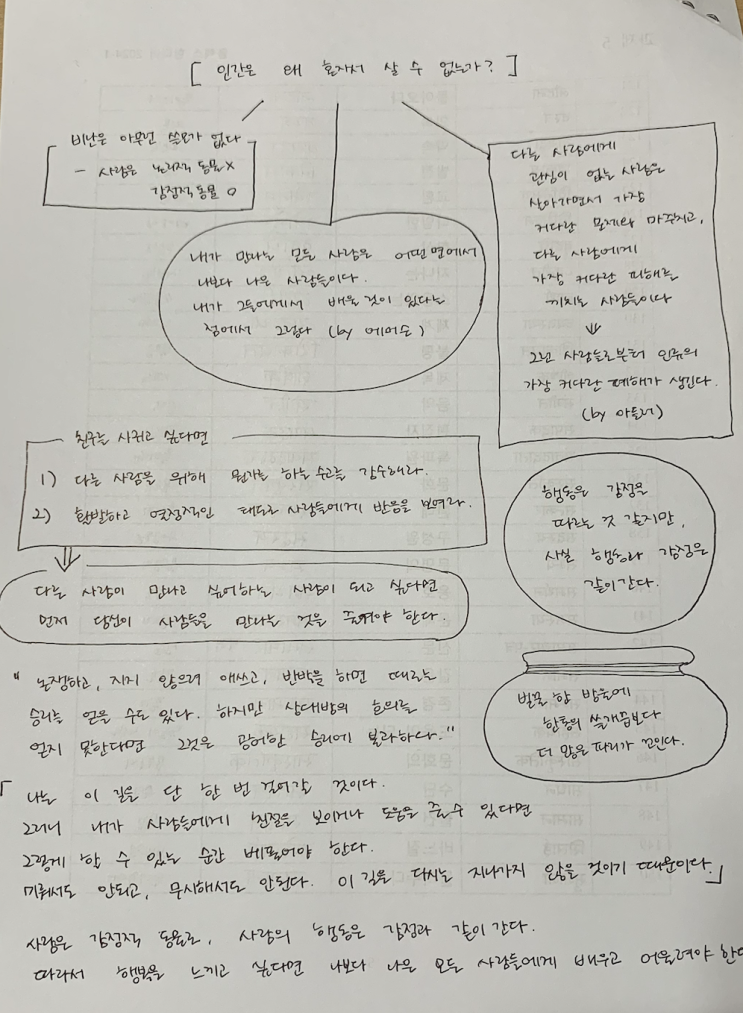 [ 인간은 왜 혼자서 살 수 없는가? ]
비난은 아무런 쓸모가 없다
- 사람은 논리적 동물 X
감정적 동물 O
내가 만나는 모든 사람은 어떤 면에서
나보다 나은 사람들이다.
내가 그들에게서 배울 것이 있다는
점에서 그렇다 (by 에머슨)
다른 사람에게
관심이 없는 사람은
살아가면서 가장
커다란 문제와 마주치고,
다른 사람에게
가장 커다란 피해를
끼치는 사람들이다
⇓
그런 사람들로부터 인류의
가장 커다란 폐해가 생긴다.
(by 아들러)
친구를 사귀고 싶다면
1) 다른 사람을 위해 뭔가를 하는 수고를 감수해라.
2) 활발하고 열정적인 태도로 사람들에게 반응을 보여라.
⇓
다른 사람이 만나고 싶어하는 사람이 되고 싶다면
먼저 당신이 사람들을 만나는 것을 즐겨야 한다.
행동은 감정을
따르는 것 같지만,
사실 행동과 감정은
같이 간다.
"논쟁하고, 지지 않으려 애쓰고, 반박을 하면 때로는
승리를 얻을 수도 있다. 하지만 상대방의 호의를
얻지 못한다면 그것은 공허한 승리에 불과하다."
벌꿀 한 방울에
한통의 쓸개즙보다
더 많은 파리가 꼬인다.
「나는 이 길을 단 한 번 걸어갈 것이다.
그러니 내가 사람들에게 친절을 보이거나 도움을 줄 수 있다면
그렇게 할 수 있는 순간 베풀어야 한다.
미뤄서도 안되고, 무시해서도 안된다. 이 길을 다시는 지나가지 않을 것이기 때문이다.」
사람은 감정적 동물로, 사람의 행동은 감정과 같이 간다.
따라서 행복을 느끼고 싶다면 나보다 나은 모든 사람들에게 배우고 어울려야 한다